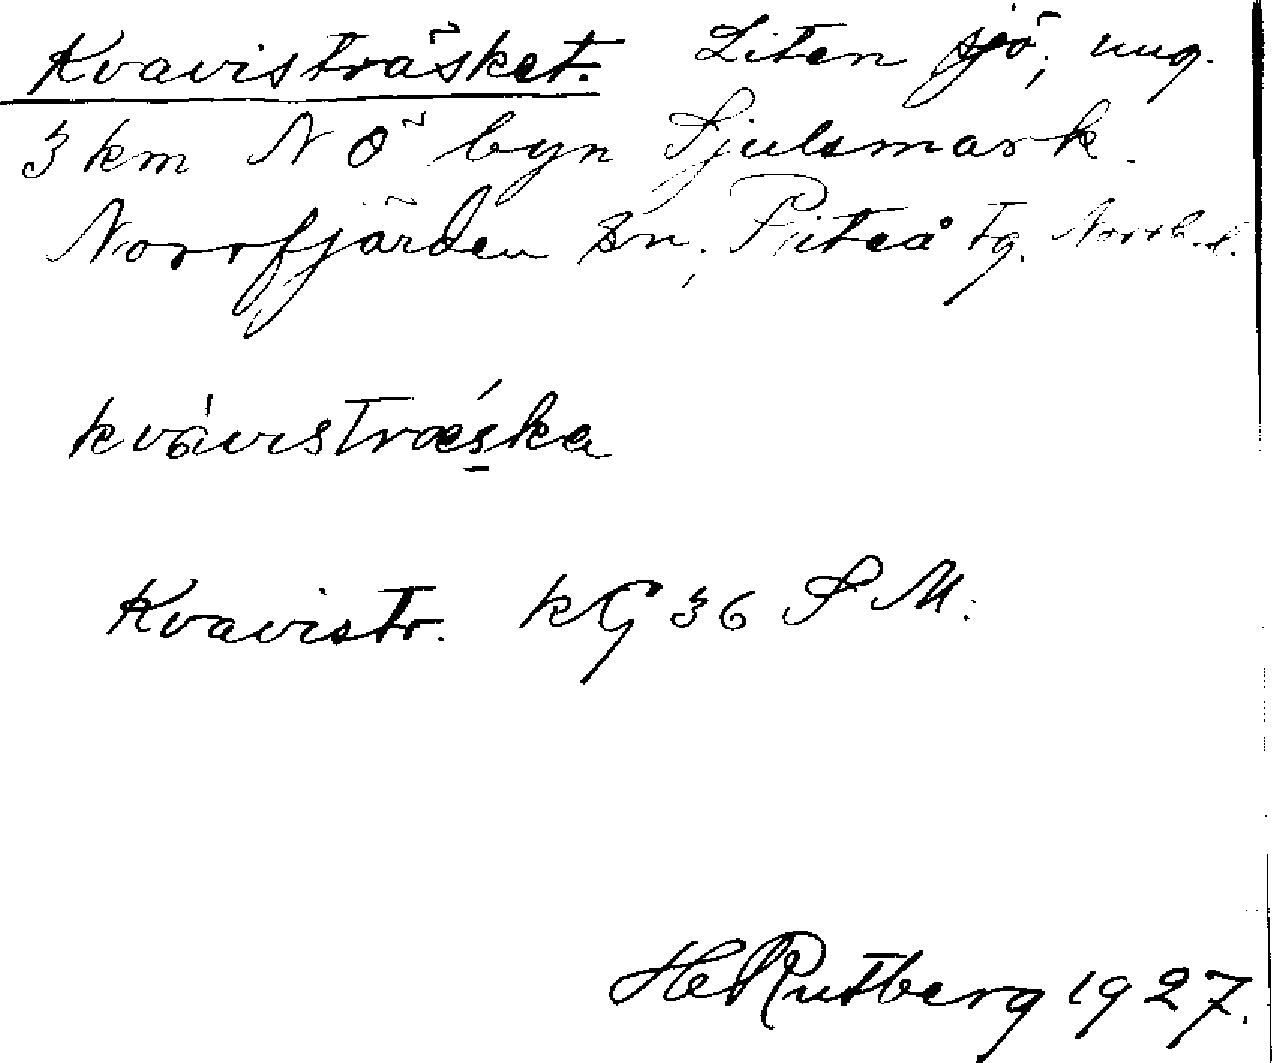 Kvavisträsket. Liten sjö, ung.
3 km N Ö byn Sjulsmark.
Norrfjärden sn, Piteå tg. Nortb. l.
kvàvistrǽska
Kvavistr. kG 36 S M.
HeRutberg 1927.